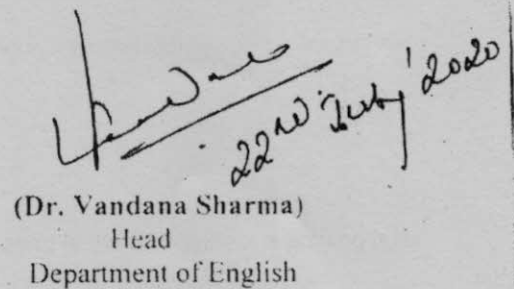 Vandana
22nd July' 2020
(Dr. Vandana Sharma)
Head
Department of English